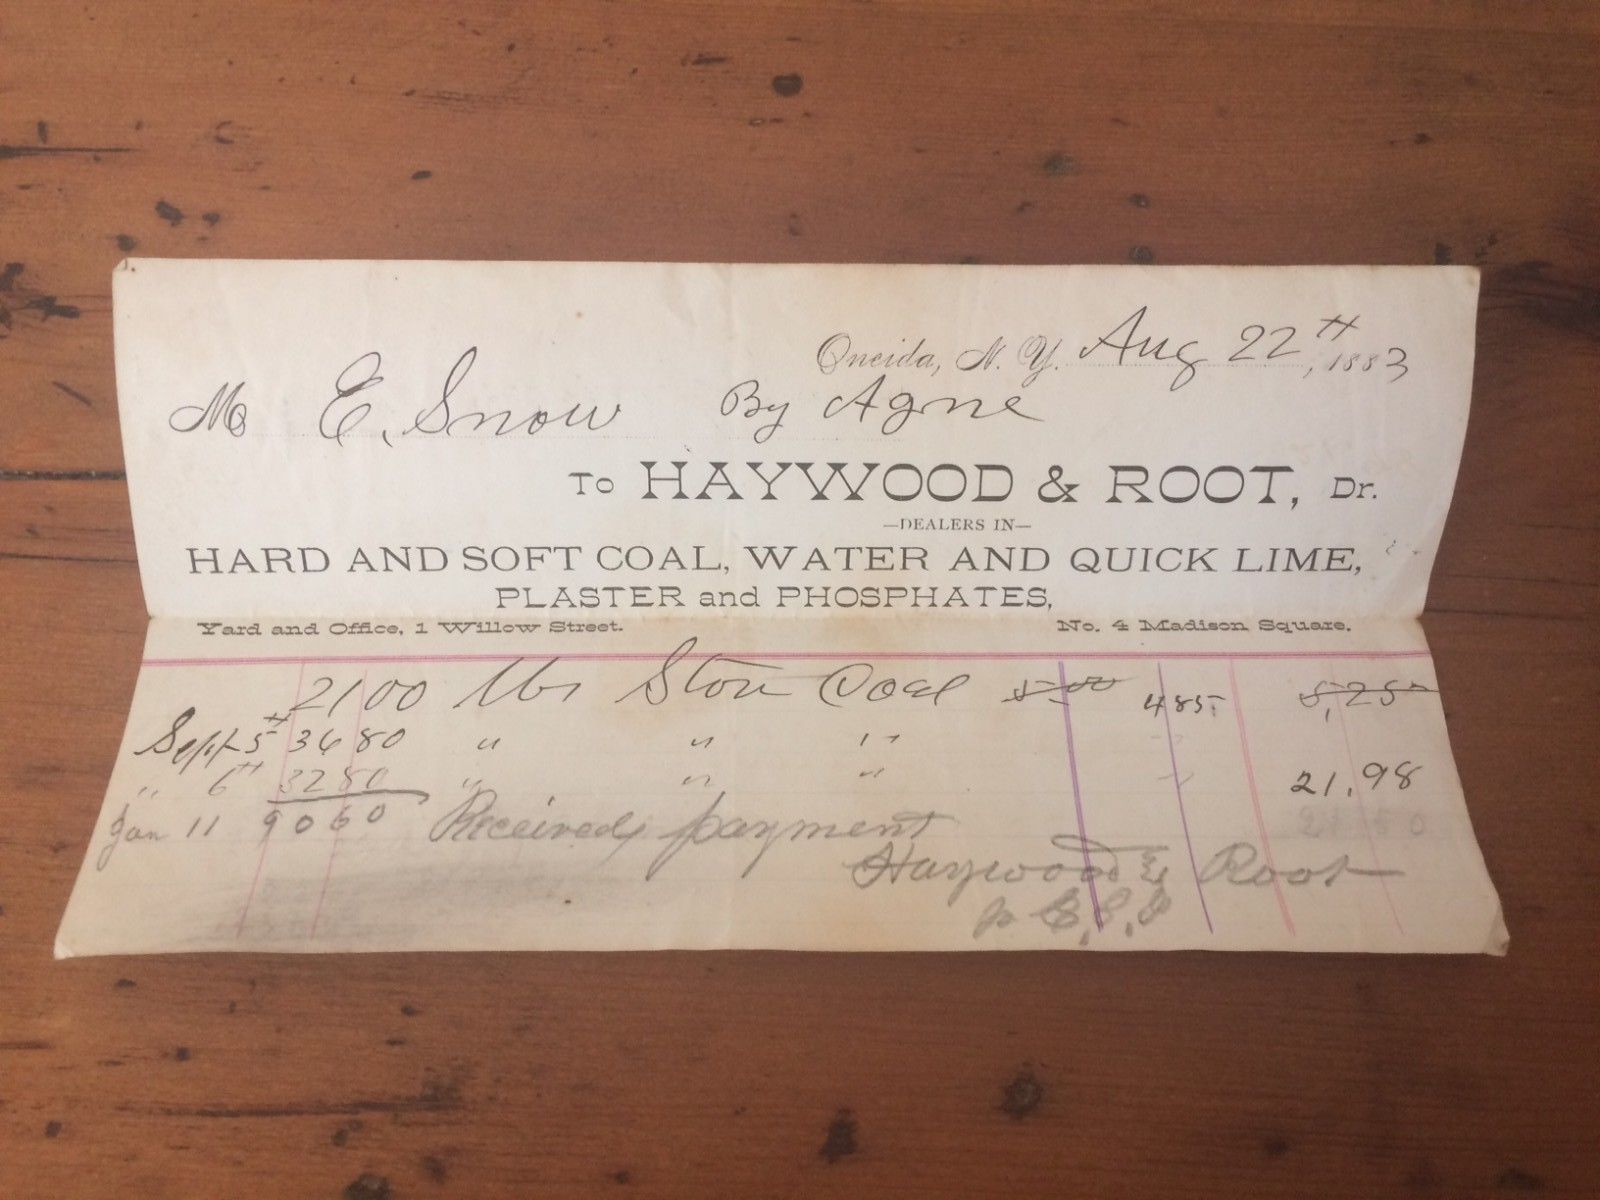 Oneida, N. Y. Aug 22th, 1883
M E. Snow By Agne
To HAYWOOD & ROOT, Dr.
—DEALERS IN—
HARD AND SOFT COAL, WATER AND QUICK LIME,
PLASTER and PHOSPHATES,
Yard and Office, 1 Willow Street. No. 4 Madison Square.
2100 lbs Stove Coal 5.00 485 5,25
Sept 5th 3680 " " "
" 6th 3280 " " " " 21.98
Jan 11 9060 Received payment
Haywood & Root